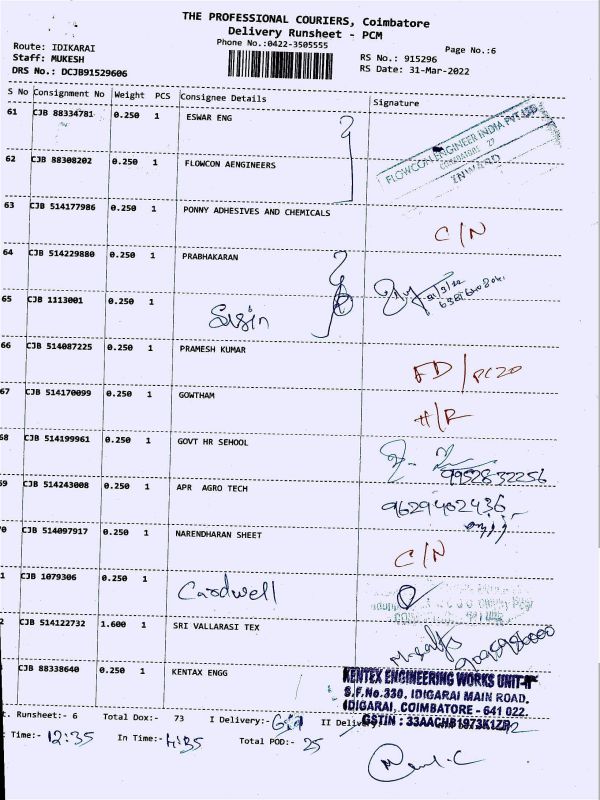 THE PROFESSIONAL COURIERS, Coimbatore
Delivery Runsheet - PCM
Phone No.:0422-3505555
Page No.:6
Route: IDIKARAI
Staff: MUKESH
DRS No.: DCJB91529606
RS No.: 915296
RS Date: 31-Mar-2022
S No Consignment No Weight PCS Consignee Details Signature
61 CJB 88334781 0.250 1 ESWAR ENG
FLOWCON ENGINEER INDIA PVT
INWARD
62 CJB 88308202 0.250 1 FLOWCON AENGINEERS
63 CJB 514177986 0.250 1 PONNY ADHESIVES AND CHEMICALS C/N
64 CJB 514229880 0.250 1 PRABHAKARAN
65 CJB 1113001 0.250 1 Susin
66 CJB 514087225 0.250 1 PRAMESH KUMAR FD/PC20
67 CJB 514170099 0.250 1 GOWTHAM H/R
68 CJB 514199961 0.250 1 GOVT HR SEHOOL 9952832256
69 CJB 514243008 0.250 1 APR AGRO TECH 9629402436
0 CJB 514097917 0.250 1 NARENDHARAN SHEET C/N
1 CJB 1079306 0.250 1 Cardwell
2 CJB 514122732 1.600 1 SRI VALLARASI TEX
3 CJB 88338640 0.250 1 KENTAX ENGG
KENTEX ENGINEERING WORKS UNIT-II
S.F.No.330, IDIGARAI MAIN ROAD,
IDIGARAI, COIMBATORE - 641 022.
GSTIN : 33AACHB1973K1ZP
t. Runsheet:- 6 Total Dox:- 73 I Delivery:- II Delivery:-
Time:- 12:35 In Time:- Total POD:- 25